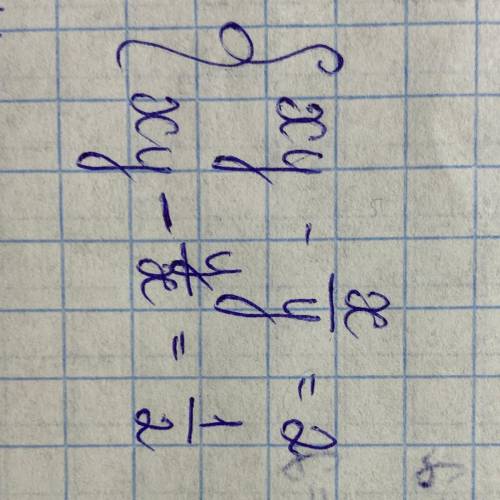 { xy - x/y = 2
xy - y/x = 1/2